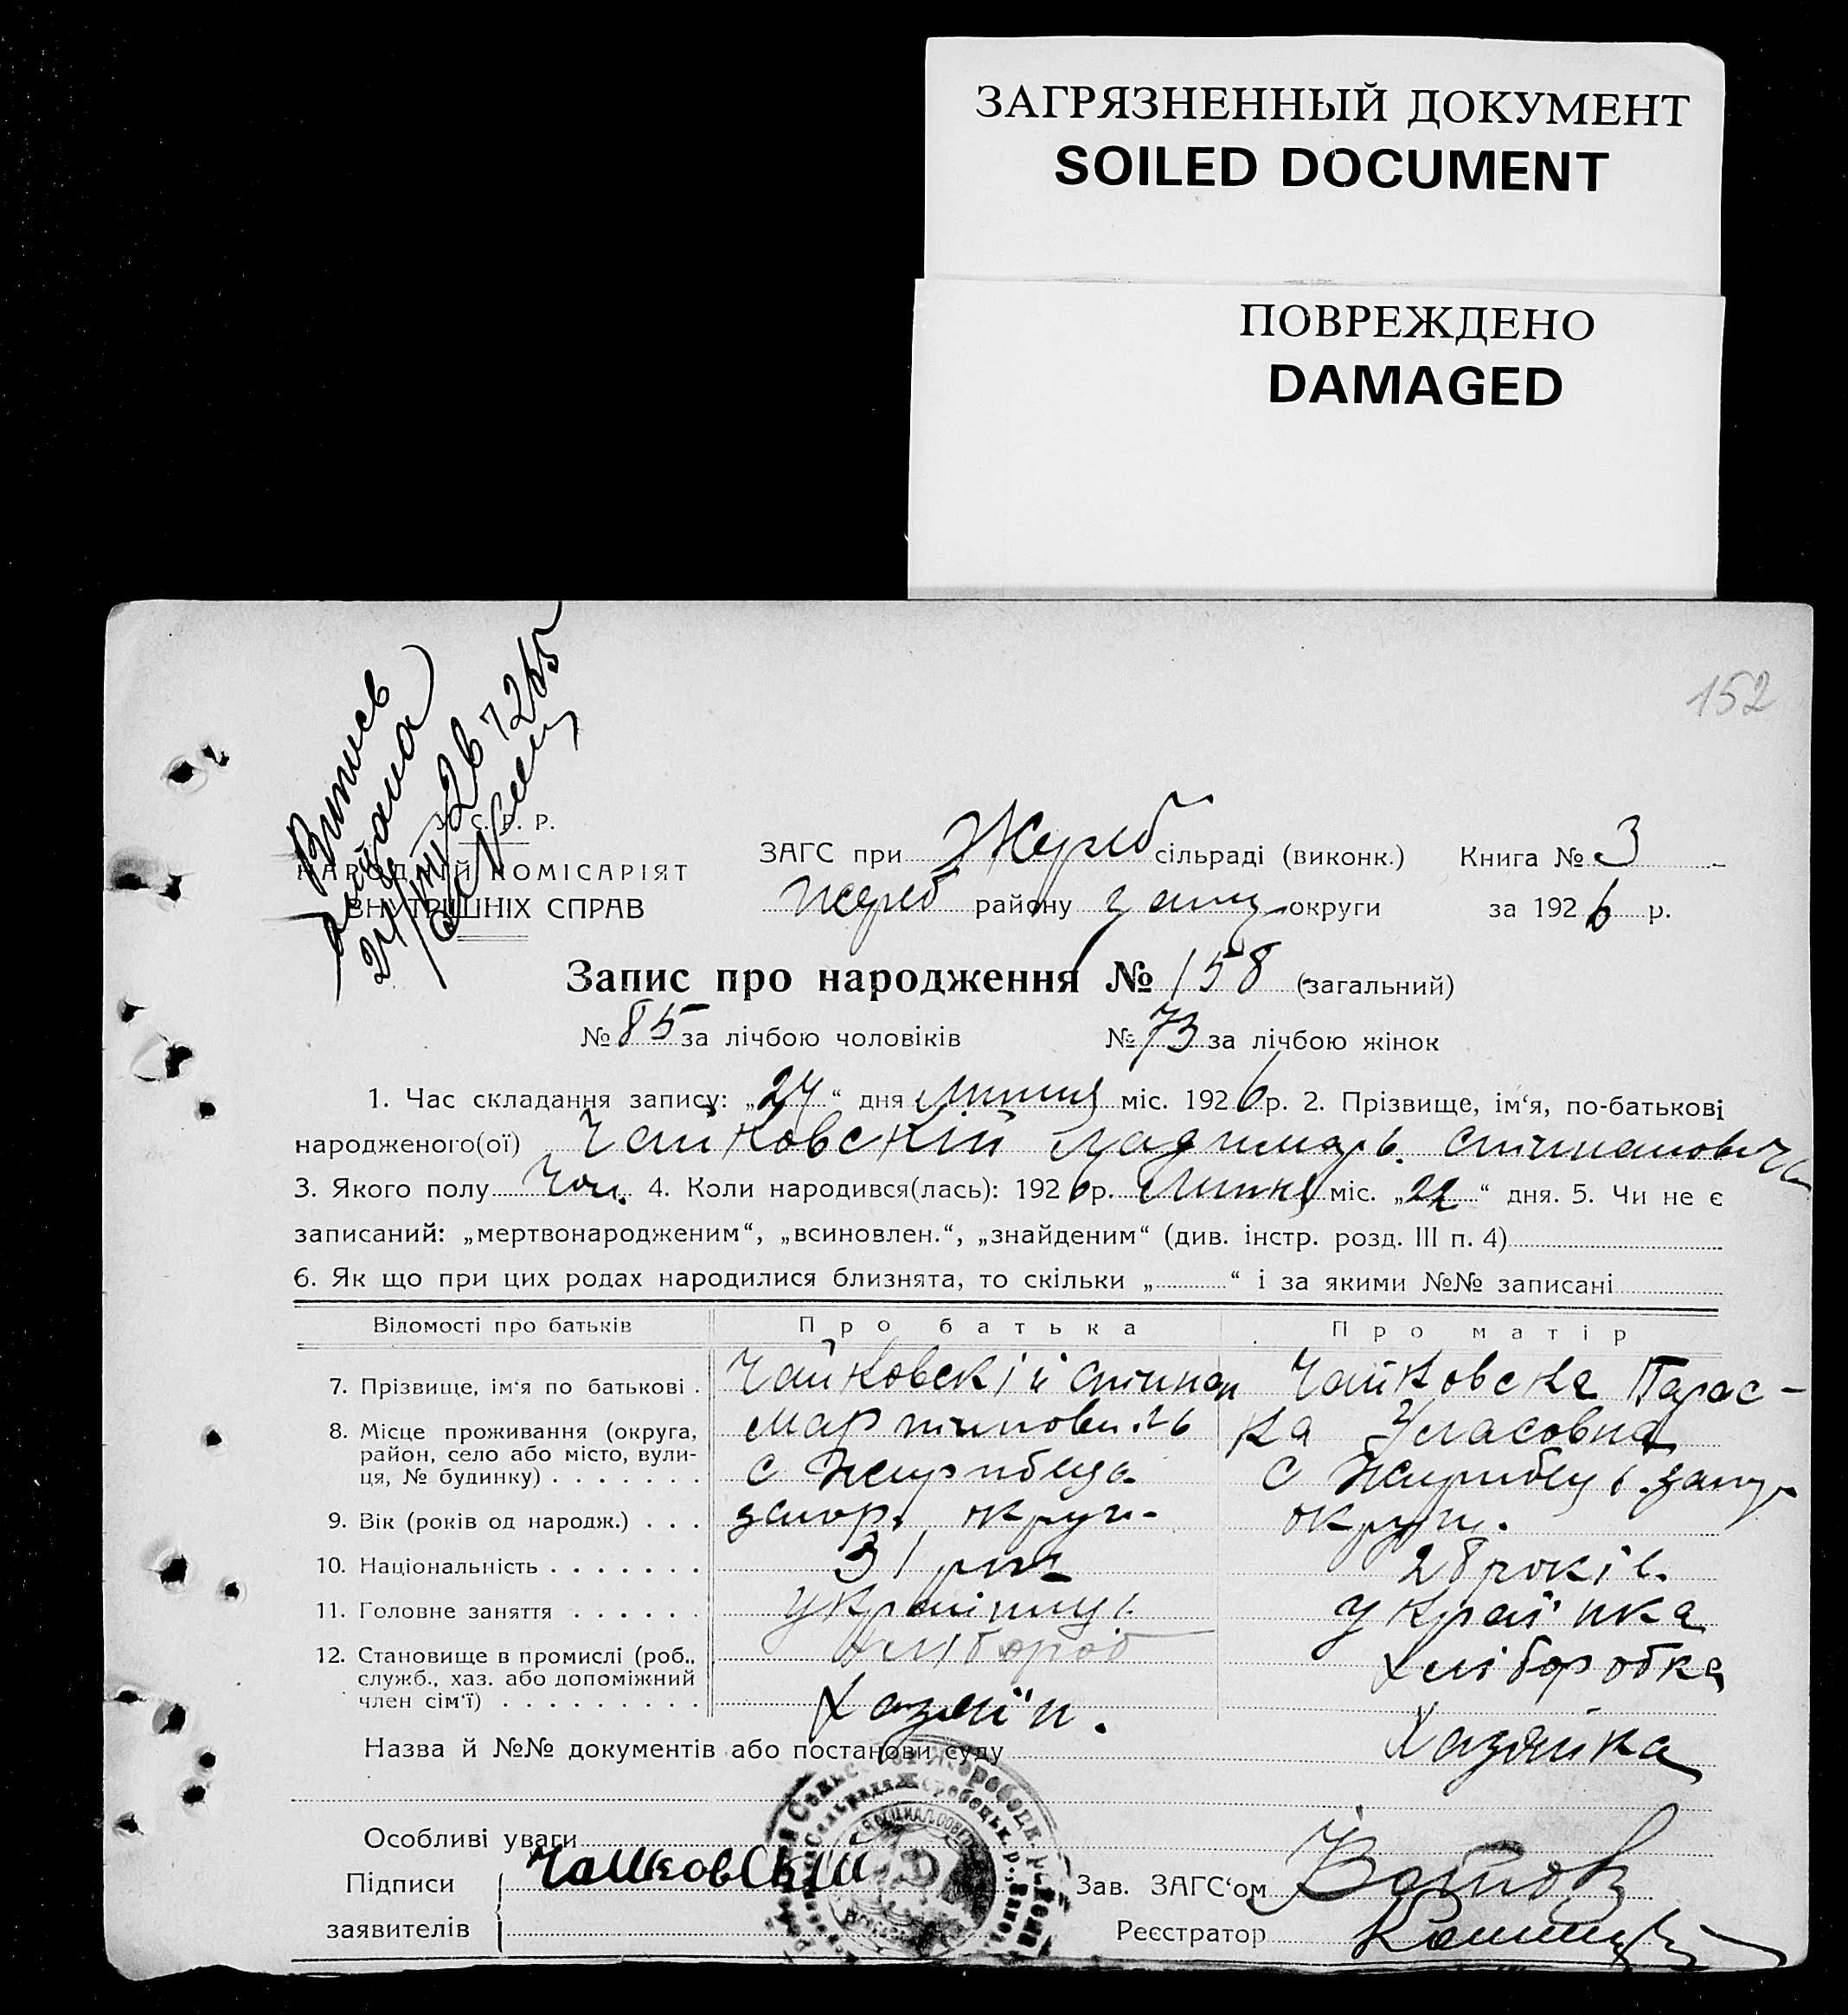 ЗАГРЯЗНЕННЫЙ ДОКУМЕНТ
SOILED DOCUMENT
ПОВРЕЖДЕНО
DAMAGED
152
Витись
видана
24/VII/26 7265
У. С. Р. Р.
НАРОДНІЙ КОМІСАРІЯТ
ВНУТРІШНІХ СПРАВ
ЗАГС при Жереб сільраді (виконк.) Книга № 3
жереб району запор округи за 1926 р.
Запис про народження № 158 (загальний)
№ 85 за лічбою чоловіків № 73 за лічбою жінок
1. Час складання запису: „24“ дня Липня міс. 1926 р. 2. Прізвище, ім‘я, по-батькові
народженого(ої) Чайковскій
3. Якого полу Чол. 4. Коли народився(лась): 1926 р. Липня міс. „22“ дня. 5. Чи не є
записаний: „мертвонародженим“, „всиновлен.“, „знайденим“ (див. інстр. розд. III п. 4)
6. Як що при цих родах народилися близнята, то скільки „ “ і за якими №№ записані
Відомості про батьків Про батька Про матір
7. Прізвище, ім‘я по батькові . Чайковскій Чайковска Парас-
8. Місце проживання (округа, ка Уласовна
район, село або місто, вули- с с
ця, № будинку) . . . . . . .
9. Вік (років од народж.) . . . запор. округи. округи.
10. Національність . . . . . . . 31 рік 28 років.
11. Головне заняття . . . . . . українець українка
12. Становище в промислі (роб., хлібороб хліборобка
служб., хаз. або допоміжний
член сім‘ї) . . . . . . . . . Хазяїн. Хазяйка
Назва й №№ документів або постанови суду
Особливі уваги
Підписи Чайковский Зав. ЗАГС‘ом
заявителів Реєстратор